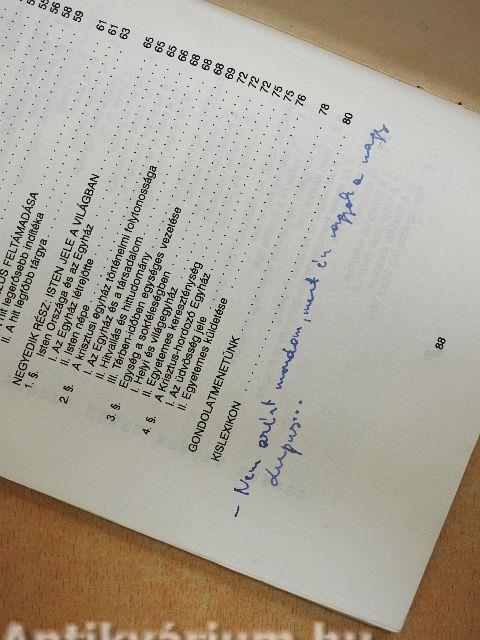 59
US FELTÁMADÁSA
A hit legerősebb indítéka
II. A hit legfőbb tárgya
NEGYEDIK RÉSZ: ISTEN JELE A VILÁGBAN
1. §. Isten Országa és az Egyház . . . 61
I. Az Egyház létrejötte . . . 61
II. Isten népe . . . 63
2. §. A krisztusi egyház történelmi folytonossága . . . 65
I. Az Egyház és a társadalom . . . 65
II. Hitvallás és hittudomány . . . 65
III. Térben-időben egységes vezetése . . . 66
3. §. Egység a sokféleségben . . . 68
I. Helyi és világegyház . . . 68
II. Egyetemes kereszténység . . . 69
4. §. A Krisztus-hordozó Egyház . . . 72
I. Az üdvösség jele . . . 72
II. Egyetemes küldetése . . . 75
GONDOLATMENETÜNK . . . 78
KISLEXIKON . . . 80
- Nem azért mondom, mert én vagyok a nagy
Lupus...
88
Antikvárium.hu